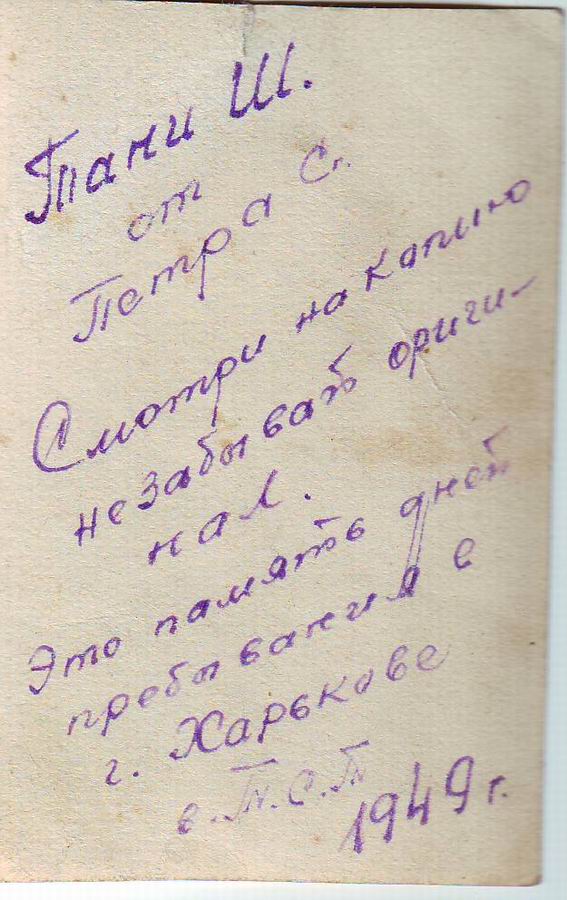 Тани Ш.
от
Петра С.
Смотри на капию
незабывать ориги-
нал.
Это память дней
пребывания в
г. Харькове
в. Т.С.Т
1949 г.